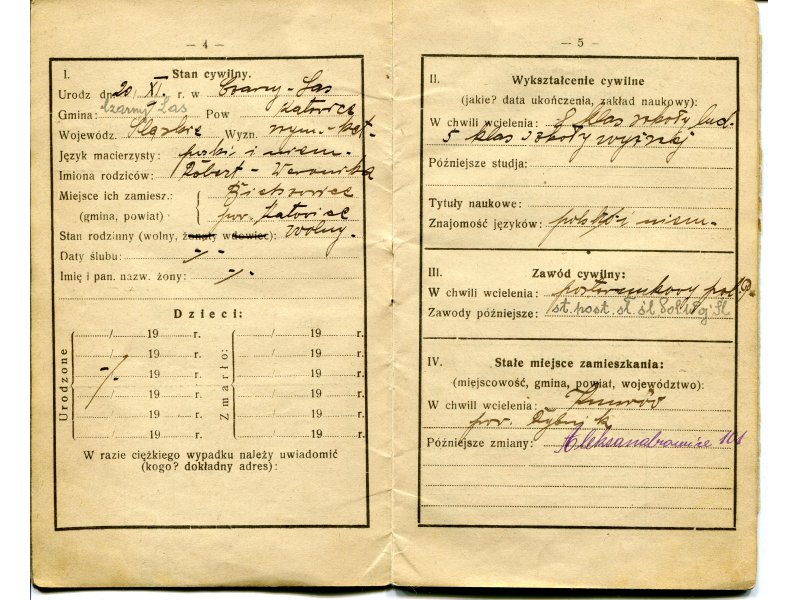 — 4 —
I. Stan cywilny.
Urodz dn. 20 XI. r. w Czarny-Las
Gmina: Czarny Las Pow Katowice
Wojewódz. Śląskie Wyzn. rzym.-kat.
Język macierzysty: polski i niem.
Imiona rodziców: Robert - Weronika
Miejsce ich zamiesz.:
(gmina, powiat) pow. Katowice
Stan rodzinny (wolny, żonaty wdowiec): Wolny.
Daty ślubu: -/-
Imię i pan. nazw. żony: -/-
Dzieci:
Urodzone
Zmarło:
/ 19 r. / 19 r.
19 r. 19 r.
-/- 19 r. 19 r.
19 r. 19 r.
19 r. 19 r.
19 r. 19 r.
W razie ciężkiego wypadku należy uwiadomić
(kogo? dokładny adres):
— 5 —
II. Wykształcenie cywilne
(jakie? data ukończenia, zakład naukowy):
W chwili wcielenia: klas szkoły lud.
5 klas szkoły wyższej
Późniejsze studja:
Tytuły naukowe:
Znajomość języków: polski i niem.
III. Zawód cywilny:
W chwili wcielenia: posterunkowy pol.
Zawody późniejsze: st. post.
IV. Stałe miejsce zamieszkania:
(miejscowość, gmina, powiat, województwo):
W chwili wcielenia:
pow. Rybnik
Późniejsze zmiany: Aleksandrowice 101